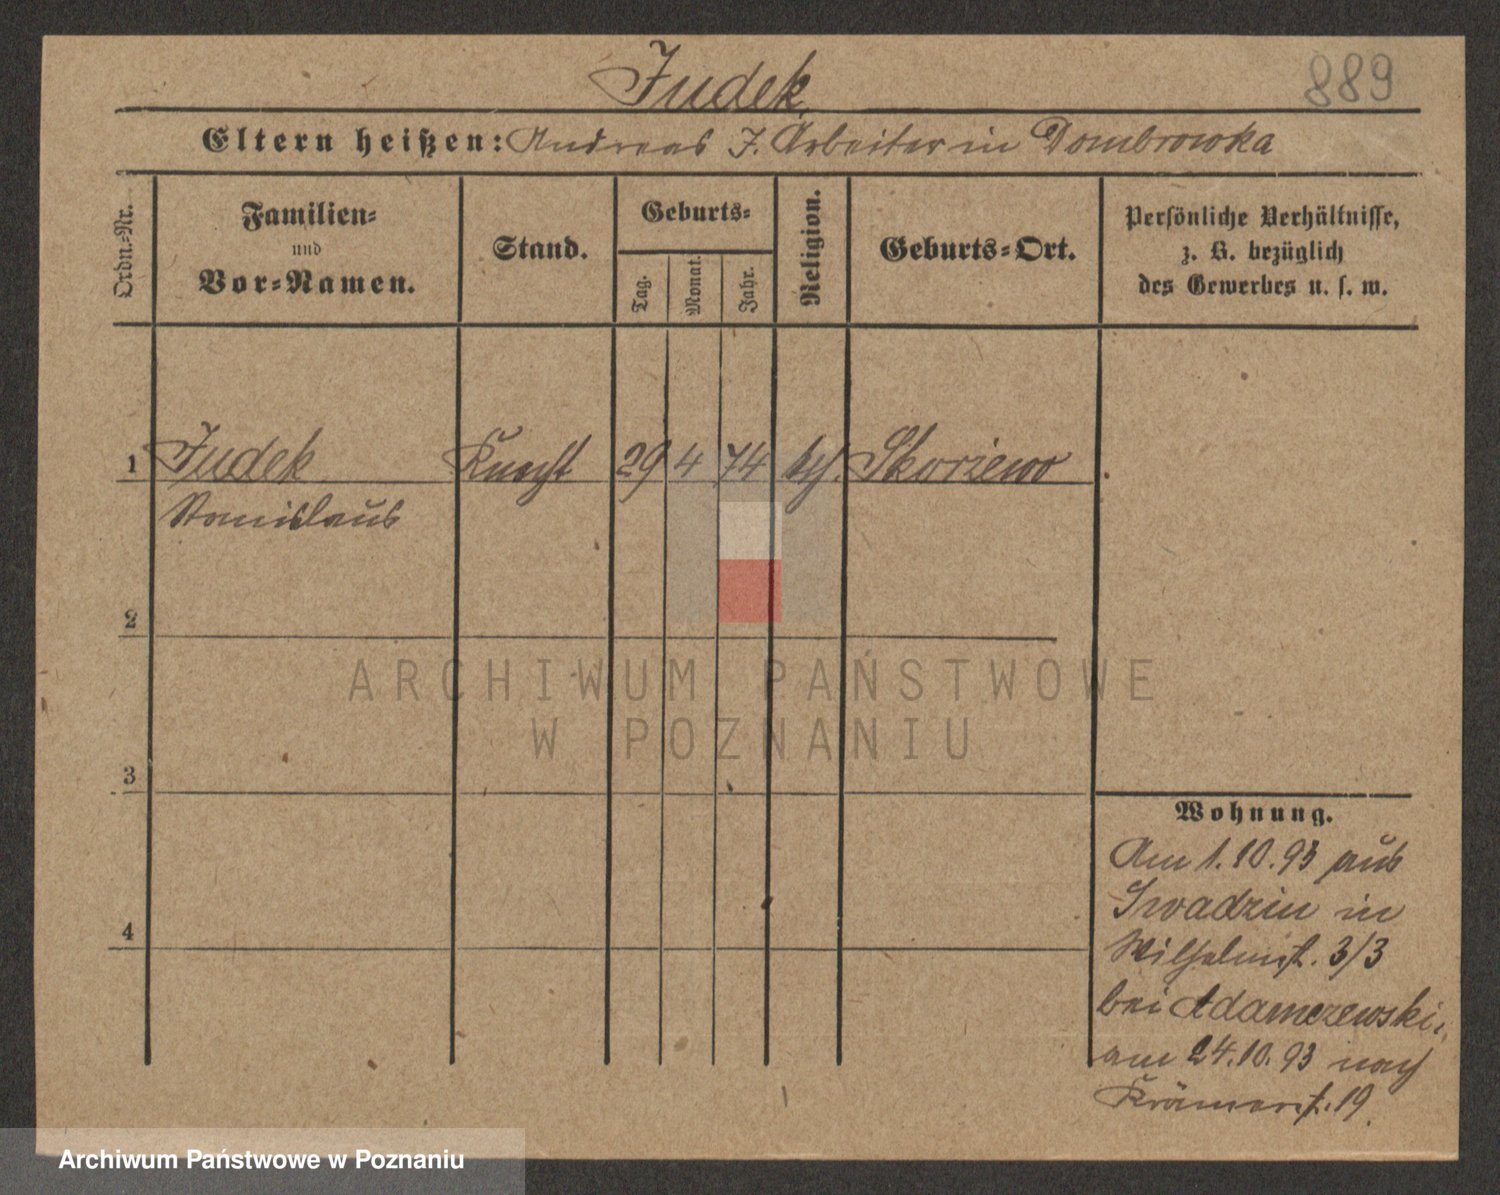 Judek
889
Eltern heißen: Andreas J. Arbeiter in Dombrowka
Ordn.-Nr.
Familien-
und
Vor-Namen.
Stand.
Geburts-
Tag.
Monat.
Jahr.
Religion.
Geburts-Ort.
Persönliche Verhältnisse,
z. B. bezüglich
des Gewerbes u. s. w.
1 Judek Knecht 29 4 74 kth. Skorzewo
Stanislaus
2
ARCHIWUM PAŃSTWOWE
W POZNANIU
3
Wohnung.
Am 1.10.93 aus
Swadzin in
Wilhelmst. 3/3
4
bei Adamczewski,
am 24.10.93 nach
Krämerst. 19.
Archiwum Państwowe w Poznaniu